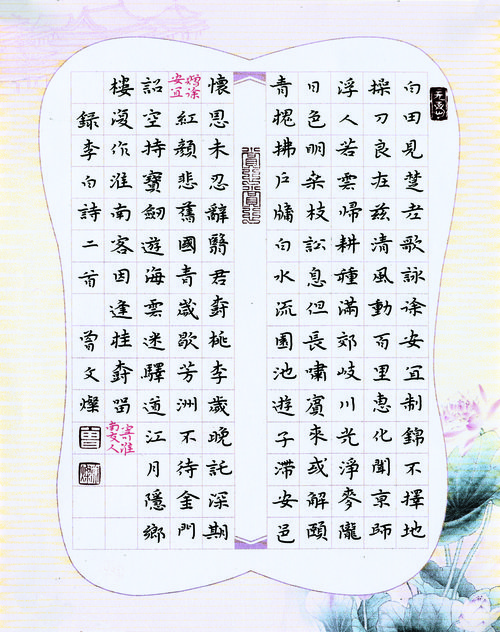 白田見楚老歌詠徐安宜制錦不擇地
操刀良在兹清風動百里惠化聞京師
浮人若雲歸耕種滿郊岐川光淨麥隴
日色明桑枝訟息但長嘯賓來或解頤
青槐拂户牖白水流園池遊子滯安邑
懷恩未忍辭翳君樹桃李歲晚託深期
贈徐安宜
紅顏悲舊國青歲歇芳洲不待金門
詔空持寶劍遊海雲迷驛道江月隱鄉
樓復作淮南客因逢桂樹留
寄淮南友人
録李白詩二首 曾文燦